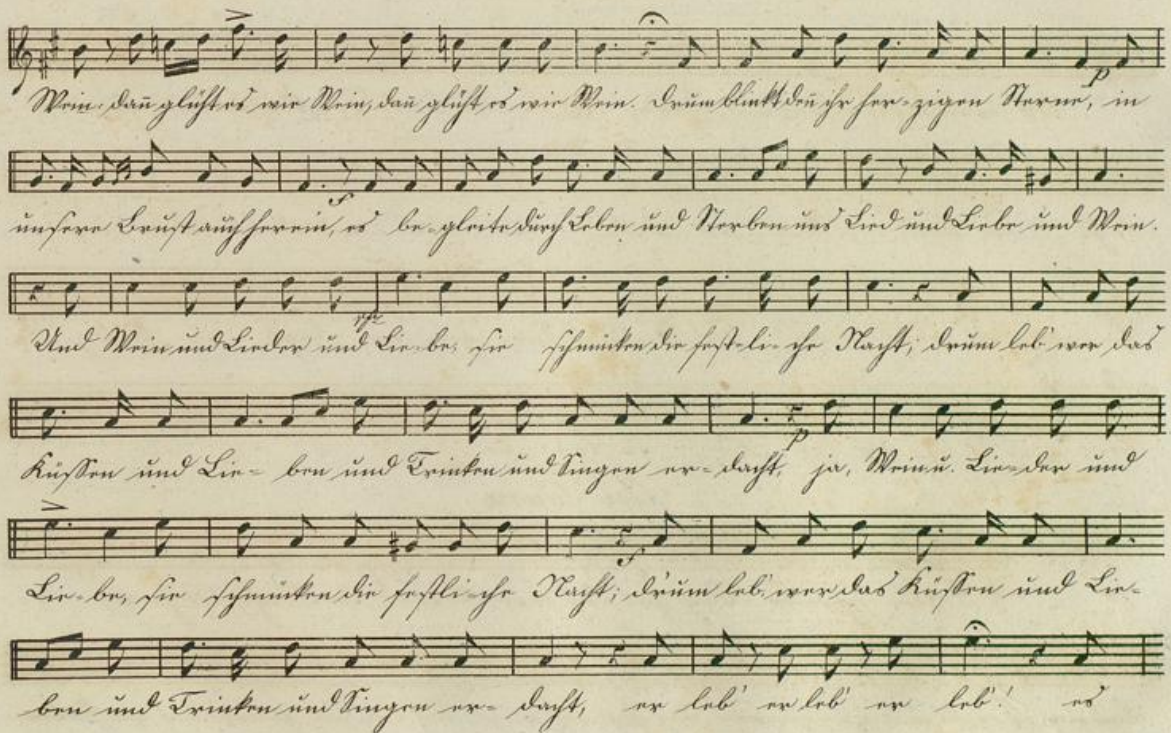 Wein; dañ glüht es wie Wein, dañ glüht es wie Wein. Drum blinkt deñ ihr her-zigen Sterne, in
p
unsere Brust auch herein, es be-gleite durch Leben und Sterben uns Lied und Liebe und Wein.
f
Und Wein und Lieder und Lie-be, sie schmücken die fest-li-che Nacht; drum leb' wer das
Küssen und Lie-ben und Trinken und Singen er-dacht, ja, Wein u. Lie-der und
p
Lie-be, sie schmücken die festli-che Nacht; drum leb' wer das Küssen und Lie-
f
ben und Trinken und Singen er-dacht, er leb' er leb' er leb'! es